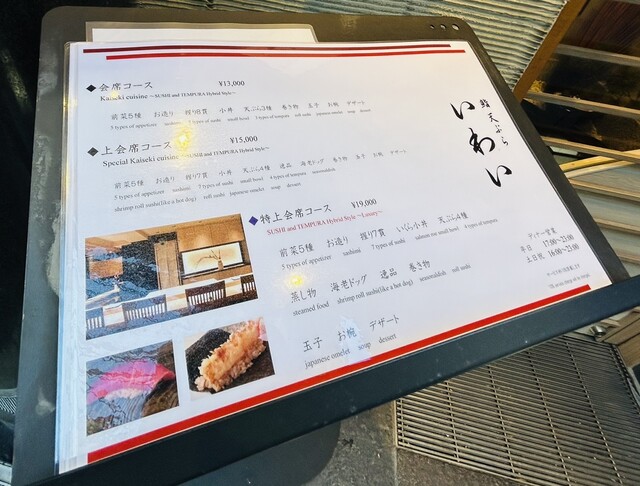 ◆会席コース ¥13,000
Kaiseki cuisine ～SUSHI and TEMPURA Hybrid Style～
前菜5種 お造り 握り8貫 小丼 天ぷら3種 巻き物 玉子 お椀 デザート
5 types of appetizer sashimi small bowl 3 types of tempura roll sushi japanese omelet soup dessert
◆上会席コース ¥15,000
Special Kaiseki cuisine ～SUSHI and TEMPURA Hybrid Style～
前菜5種 お造り 握り7貫 小丼 天ぷら4種 逸品 海老ドッグ 巻き物 玉子 お椀 デザート
5 types of appetizer sashimi 7 types of sushi small bowl 4 types of tempura
shrimp roll sushi(like a hot dog) roll sushi japanese omelet soup dessert
◆特上会席コース ¥19,000
SUSHI and TEMPURA Hybrid Style ～Luxury～
前菜5種 お造り 握り7貫 いくら小丼 天ぷら4種
5 types of appetizer sashimi 7 types of sushi salmon roe small bowl 4 types of tempura
蒸し物 海老ドッグ 逸品 巻き物
steamed food shrimp roll sushi(like a hot dog) roll sushi
玉子 お椀 デザート
japanese omelet soup dessert
鮨 天ぷら
いわい
ディナー営業
平日 17:00～23:00
土日祝 16:00～23:00